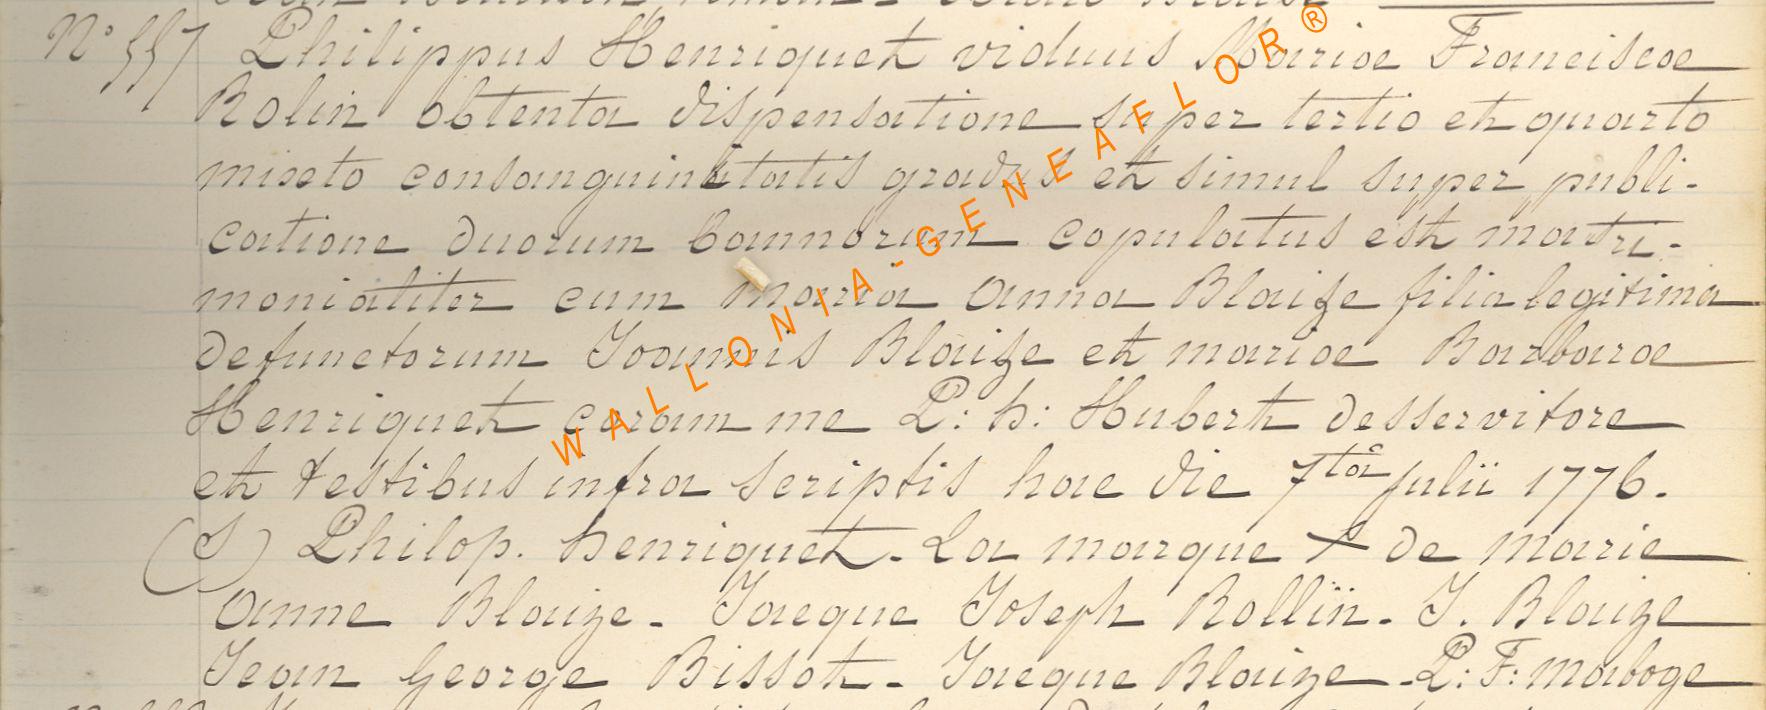 N° 557 Philippus Henriquet viduus Mariae Franciscae
Rolin obtenta dispensatione super tertio et quarto
mixto consanguinitatis gradus et simul super publi-
catione duorum bannorum copulatus est matri-
monialiter cum maria Anna Blaize filia legitima
defunctorum Joannis Blaize et mariae Barbarae
Henriquet coram me P: h: Hubert desservitore
et testibus infra scriptis hac die 7 julii 1776.
(S) Philop. henriquet. La marque x de marie
Anne Blaize. Jacque Joseph Rollin. J. Blaize
Jean George Bissot. Jacque Blaize. P: F: Maboge
WALLONIA-GENEAFLOR®